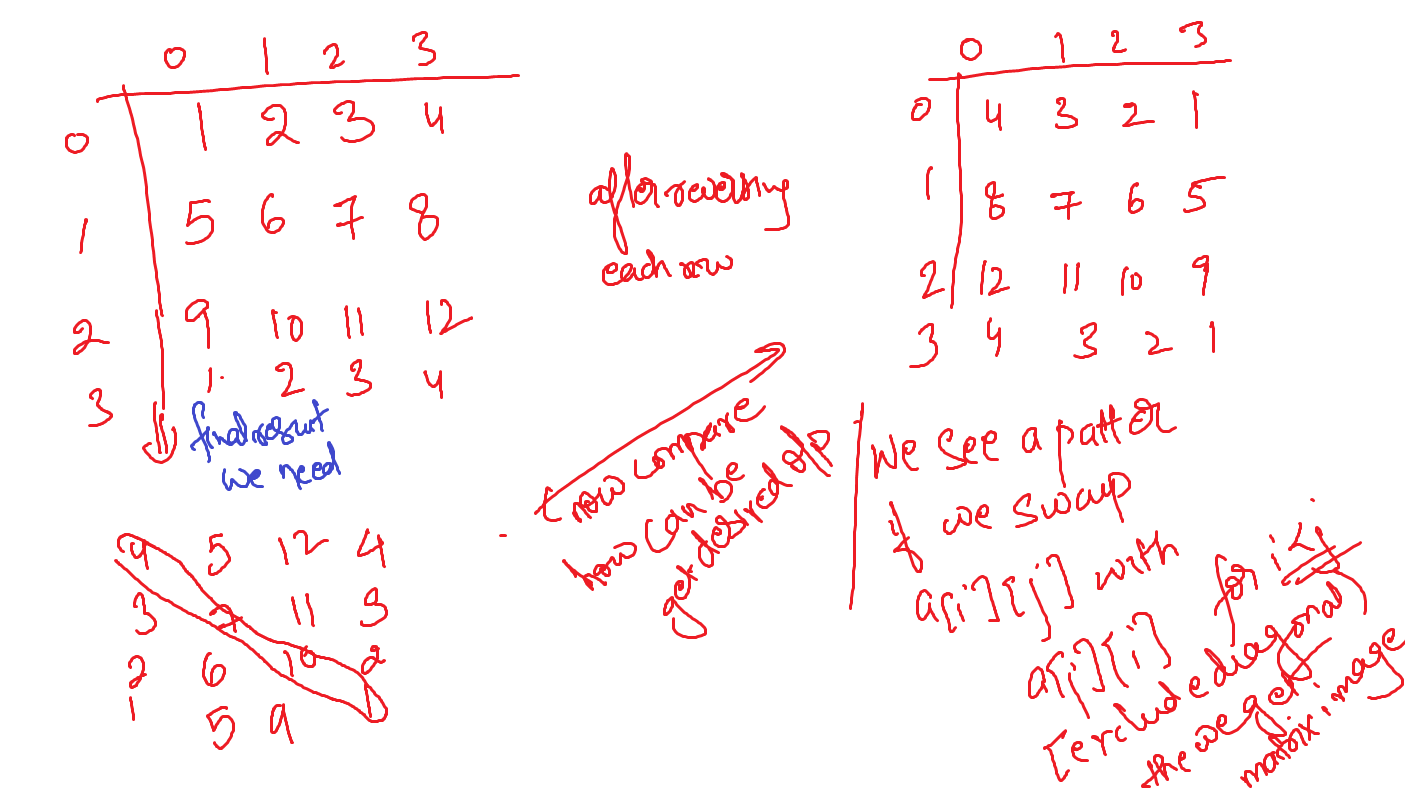 0 1 2 3
0 1 2 3 4
1 5 6 7 8
2 9 10 11 12
3 1 2 3 4
after reversing
each row
0 1 2 3
0 4 3 2 1
1 8 7 6 5
2 12 11 10 9
3 4 3 2 1
final result
we need
9 5 12 4
3 7 11 3
2 6 10 2
1 5 9 1
(now compare
how can be
get desired o/p
We see a patter
if we swap
a[i][j] with
a[j][i] for i<j
[exclude diagonal]
the we get
matrix image